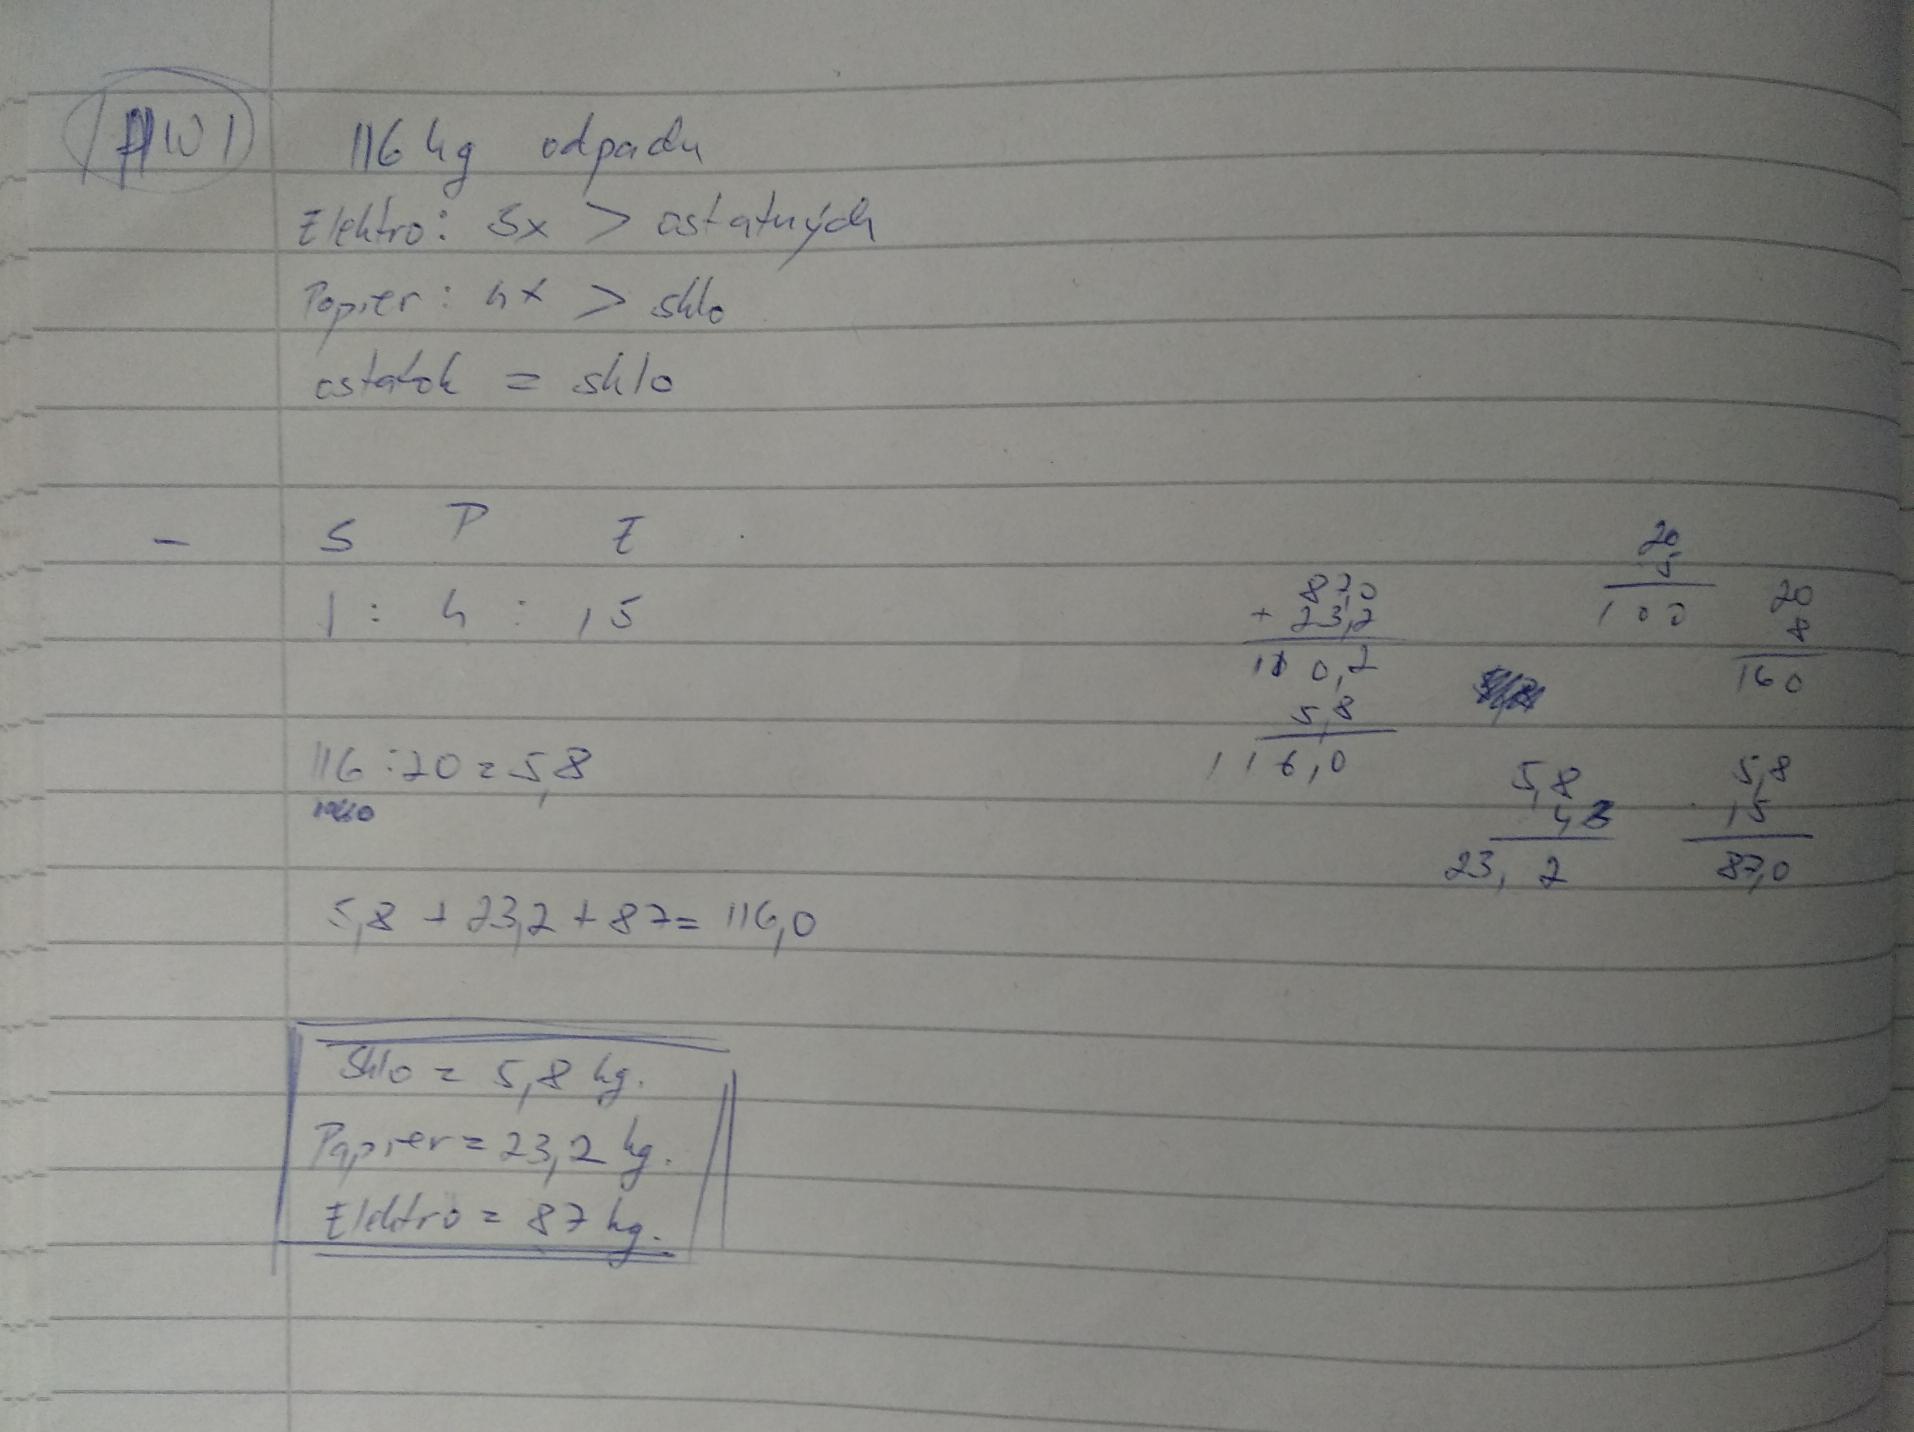 HW1
116 kg odpadu
Elektro: 3x > ostatných
Papier: 4x > sklo
ostatok = sklo
- S P E
1 : 4 : 15
116 : 20 = 5,8
5,8 + 23,2 + 87 = 116,0
Sklo = 5,8 kg.
Papier = 23,2 kg.
Elektro = 87 kg.
87,0
+ 23,2
110,2
5,8
116,0
20
5
100
20
8
160
5,8
4
23,2
5,8
15
87,0